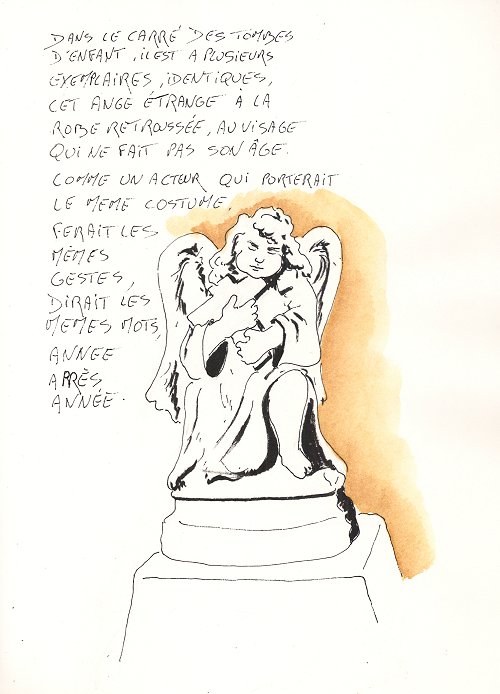 DANS LE CARRÉ DES TOMBES
D'ENFANT, IL EST A PLUSIEURS
EXEMPLAIRES, IDENTIQUES,
CET ANGE ÉTRANGE À LA
ROBE RETROUSSÉE, AU VISAGE
QUI NE FAIT PAS SON ÂGE.
COMME UN ACTEUR QUI PORTERAIT
LE MEME COSTUME,
FERAIT LES
MÊMES
GESTES,
DIRAIT LES
MEMES MOTS,
ANNEE
APRÈS
ANNÉE.